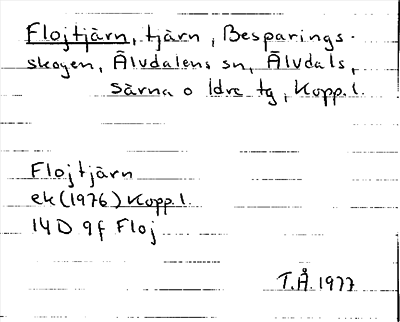 Flojtjärn, tjärn, Besparings-
skogen, Älvdalens sn, Älvdals,
Särna o Idre tg, Kopp.l.
Flojtjärn
ek (1976) Kopp.l.
14D 9f Floj
T.Å. 1977